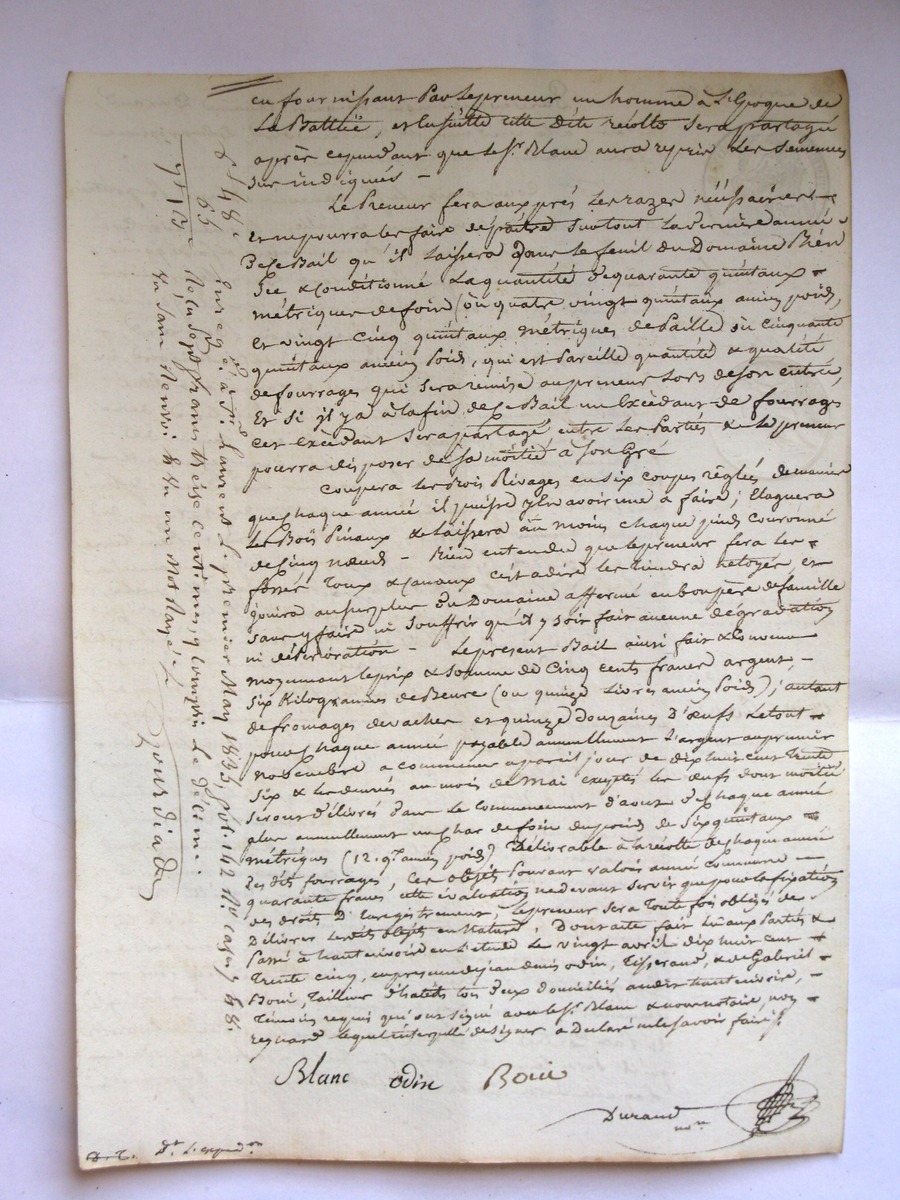 en fournissant Par Lepreneur un homme à L'Epoque de
La Battüe, et Ensuitte cette dite récolte sera partagée
après cependant que le Sr. Blanc aura repris Les semences
sus indiqués -
Le Preneur fera aux prés Les razes nécéssaires
et ne pourra les faire dépaître surtout La dernière année
De ce Bail qu'il Laissera dans le feuil du Domaine Bien
Sec & Conditionné La quantité de quarante quintaux
métriques de foin (ou quatre vingt quintaux ancien poids,
et vingt cinq quintaux métriques de Paille ou cinquante
quintaux ancien Poids, qui est Pareille quantité & qualité
de fourrages qui sera remise au preneur Lors de son entrée,
Et Si il y a à la fin de ce Bail un Excédant de fourrages
cet excédant sera partagé entre Les Parties & Le preneur
pourra disposer de sa moitié à son Gré
Coupera les bois Rivages en six coupes réglées de manière
que chaque année il puisse y en avoir une à faire; Elaguera
Les Bois Pinaux & Laissera au moins chaque pied Couronné
de cinq nœuds - Bien entendu que le preneur fera les
fossés Toux & Canaux c'est adire les tiendra netoyés et
jouira au surplus du Domaine affermé en bon père de famille
sans y faire ni souffrir qu'il y soit fait aucune dégradation
ni détérioration - Le présent Bail ainsi fait & Convenu
moyennant le prix & Somme de Cinq cents francs argent,
six Kilogrammes de Beure (ou quinze Livres ancien Poids); autant
de fromages de vaches et quinze douzaines D'œufs Le tout
pour chaque année payable annuellement L'argent au premier
novembre a commencer a pareil jour de dix huit cent trente
six & les denrés au mois de Mai exceptés les œufs dont moitié
seront délivrés dans Le commencement d'aout de chaque année
plus annuellement un char de foin du poids de six quintaux
métriques (12. qx. ancien poids) Délivrable à la récolte de chaque année
des dits fourrages, Ces objets Pouvant valoir année Commune
quarante francs cette évaluation ne devant servir que pour la fixation
des droits D'Enregistrement, Le preneur sera Toute fois obligés de
Délivrer Lesdits objets en Nature. Dont acte fait Lu aux Parties &
Passé à hautrivoire en L'étude Le vingt avril dix huit cent
Trente cinq, en presence de jean denis odin, Tisserand, & de Gabriel
Boui, Tailleur d'habits tous deux domiciliés audit hautrivoire,
Témoins requis qui ont signé avec le Sr. Blanc & nous notaire, non
reynard lequel interpellé de signer a Déclaré ne le savoir faire
Blanc odin Boui
Durand
nore
Dt. L'expedon
Enregé. à St. Laurent Le premier May 1835, fol. 142 Ro cases
Reçu Sept francs treise centimes, y compris le décime.
Gourdiade